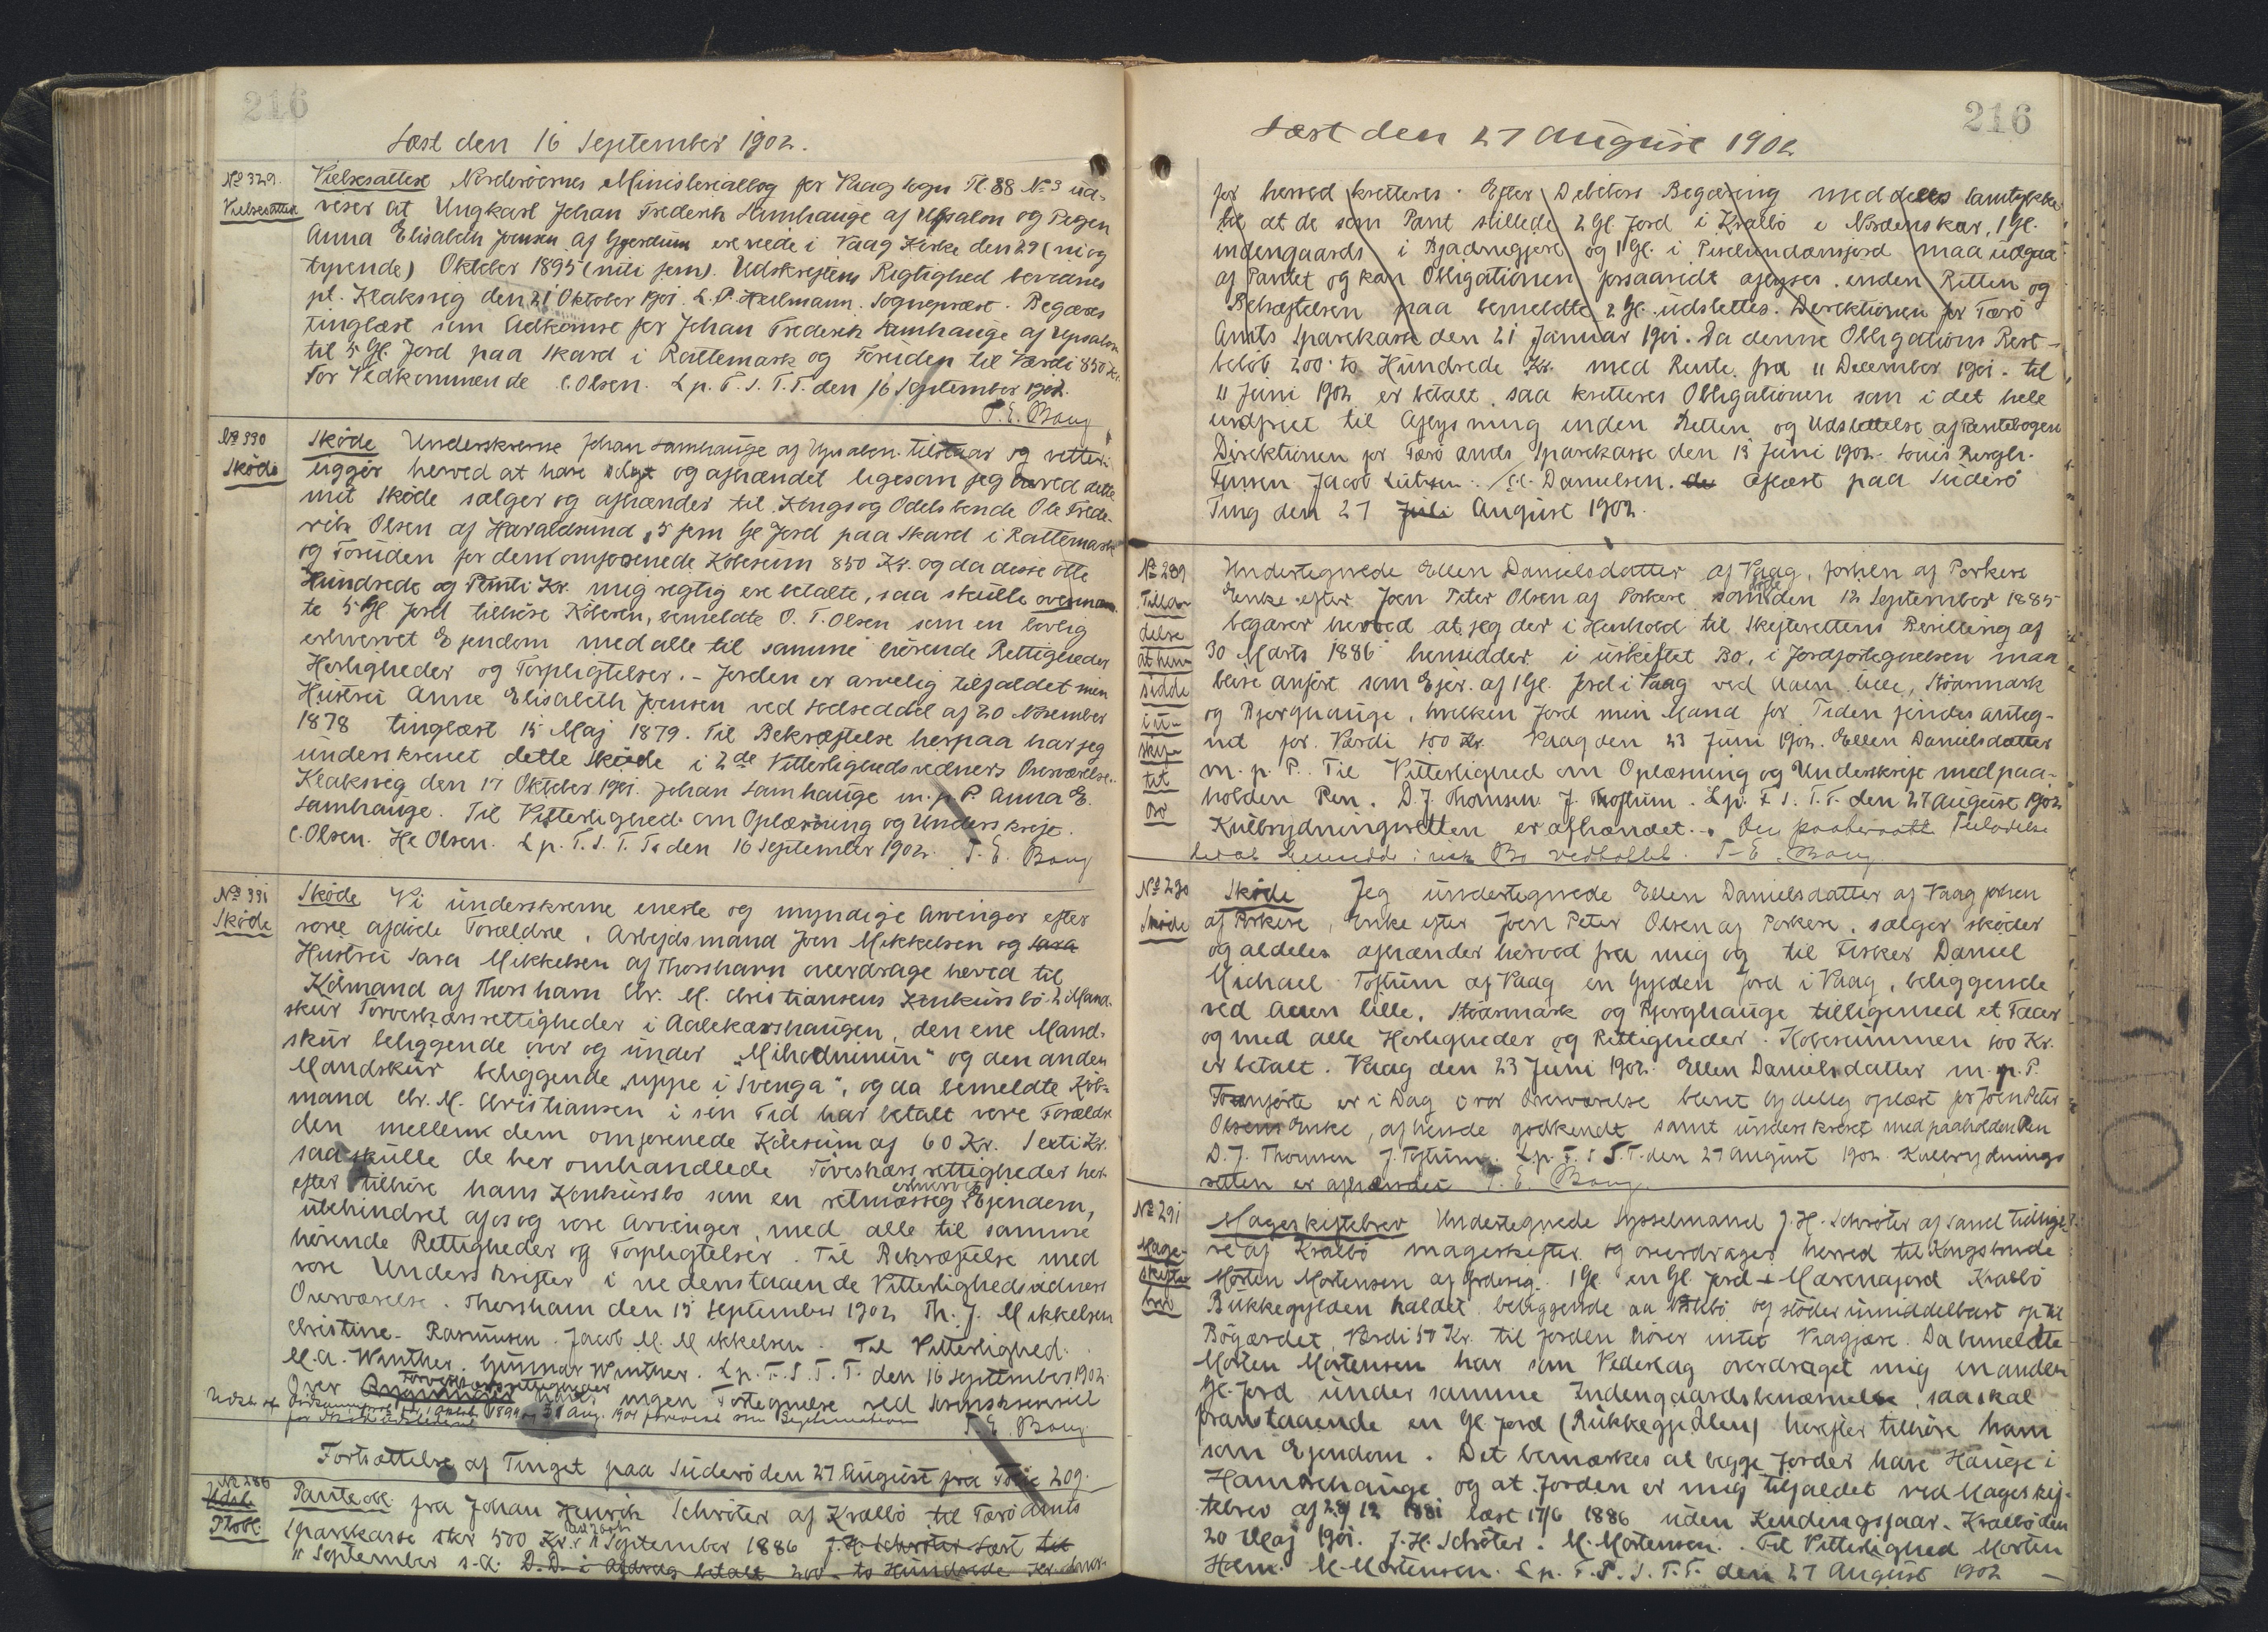 216
Læst den 16 September 1902.
No 329. Vielsesattest Norderöernes Ministerialbog for Vaag Sogn Pl. 88 No 3 ud-
Vielsesattest viser at Ungkarl Johan Frederik Samhauge af Upsalon og Pigen
Anna Elisabeth Joensen af Gjerdum ere viede i Vaag Kirke den 29 (ni og
tyvende) Oktober 1895 (niti fem). Udskriftens Rigtighed bevidnes
pt. Klaksvig den 21 Oktober 1901. L. P. Heilmann. Sognepræst. Begæres
tinglæst som Adkomst for Johan Frederik Samhauge af Upsalon
til 5 Gl. Jord paa Skard i Rattemark og Foruden til Værdi 850 Kr.
For Vedkommende C. Olsen. L p. F. S. T. T. den 16 September 1902.
T. E. Bang
No 330 Skøde Underskrevne Johan Samhauge af Upsalon tilstaar og vitter-
Skøde liggör herved at have solgt og afhændet ligesom jeg herved dette
mit Skøde sælger og afhænder til Kongs og Odelsbonde Ole Frede-
rik Olsen af Haraldsund, 5 fem Gl Jord paa Skard i Rattemark
og Foruden for den omforenede Købesum 850 Kr. og da disse otte
Hundrede og Femti Kr. mig rigtig ere betalte, saa skulle ovennævn-
te 5 Gl Jord tilhöre Köberen, bemeldte O. F. Olsen som en lovlig
erhvervet Ejendom med alle til samme hörende Rettigheder
Herligheder og Forpligtelser. - Jorden er arvelig tilfaldet min
Hustru Anne Elisabeth Joensen ved Lodseddel af 20 November
1878 tinglæst 15 Maj 1879. Til Bekræftelse herpaa har jeg
underskrevet dette Skøde i 2de Vitterlighedsvidners Overværelse.
Klaksvig den 17 Oktober 1901. Johan Samhauge m. p. P. Anna E.
Samhauge. Til Vitterlighed om Oplæsning og Underskrift.
C. Olsen. He Olsen. L p. F. S. T. T. den 16 September 1902. T. E. Bang
No 331 Skøde Vi underskrevne eneste og myndige Arvinger efter
Skøde vore afdöde Forældre, Arbejdsmand Joen Mikkelsen og Sara
Hustru Sara Mikkelsen af Thorshavn overdrage herved til
Købmand af Thorshavn Chr. M. Christiansens Konkursbo 2 Mand-
skur Torveskærsrettigheder i Aalekærshaugen, den ene Mand-
skur beliggende over og under "Mihodnimun" og den anden
Mandskur beliggende "uppe i Svenga", og da bemeldte Köb-
mand Chr. M. Christiansen i sin Tid har betalt vore Forældre
den mellem dem omforenede Købesum af 60 Kr. Sexti Kr.
saa skulle de her omhandlede Töveskærsrettigheder her-
efter tilhöre hans Konkursbo som en retmæssig erhvervet Ejendom,
ubehindret af os og vore Arvinger, med alle til samme
hörende Rettigheder og Forpligtelser. Til Bekræftelse med
vore Underskrifter i nedenstaaende Vitterlighedsvidners
Overværelse. Thorshavn den 15 September 1902 Th. J. Mikkelsen
Christine Rasmussen. Jacob M. Mikkelsen. Til Vitterlighed.
M. A. Winther. Gunnar Winther. L p. F. S. T. T. den 16 September 1902.
Over Torveskærsrettigheder haves ingen Fortegnelse ved Sorenskriveriet
T. E. Bang
Fortsættelse af Tinget paa Suderö den 27 August fra Folie 209.
No 286 Panteobl. fra Johan Henrik Schröter af Kvalbö til Færö Amts
Udsl. Sparekasse stor 500 Kr. 11 September 1886 J. H. Schröter Læst til
Ptobl. 11 September s.a. D. D. i Afdrag betalt 200 to Hundrede Kr. hvor-
216
Læst den 27 August 1902
for herved kvitteres. Efter Debitors Begæring meddeles Samtykke
til at de som Pant stillede 2 Gl. Jord i Kvalbö e Nordenskar, 1 Gl.
indengaards i Bjadnegjere og 1 Gl. i Piselundansjord maa udgaa
af Pantet og kan Obligationen forsaavidt aflyses inden Retten og
Bekræftelsen paa bemeldte 2 Gl. udslettes. Direktionen for Færö
Amts Sparekasse den 21 Januar 1901. Da denne Obligations Rest-
beløb 200 to Hundrede Kr. med Rente fra 11 December 1901 til
11 Juni 1902 er betalt, saa kvitteres Obligationen som i det hele
indfriet til Aflysning inden Retten og Udslettelse af Pantebogen
Direktionen for Færö Amts Sparekasse den 13 Juni 1902. Louis Bergh.
Jacob Lützen. Danielsen. de Aflæst paa Suderö
Ting den 27 Juli August 1902.
No 289 Undertegnede Ellen Danielsdatter af Vaag, forhen af Porkere
Tilla- Enke efter Joen Peter Olsen af Porkere som döde den 12 September 1885
delse begærer herved at jeg der i Henhold til Skifterettens Bevilling af
at hen- 30 Marts 1886 hensidder i uskiftet Bo, i Jordfortegnelsen maa
sidde blive anfört som Ejer af 1 Gl. Jord i Vaag ved Aaen lille, Störsmark
i u- og Bjerghauge, hvilken Jord min Mand for Tiden findes anteg-
skif- net for. Værdi 100 Kr. Vaag den 23 Juni 1902. Ellen Danielsdatter
tet m. p. P. Til Vitterlighed om Oplæsning og Underskrift med paa-
Bo holden Pen. D. J. Thomsen J. Toftum. L p. F. S. T. T. den 27 August 1902
Kulbrydningsretten er afhændet. Den paaberaabte Tilladelse
T. E. Bang
No 290 Skøde Jeg undertegnede Ellen Danielsdatter af Vaag forhen
Skøde af Porkere, Enke efter Joen Peter Olsen af Porkere, sælger skøder
og aldeles afhænder herved fra mig og til Fisker Daniel
Michael Toftum af Vaag en Gylden Jord i Vaag, beliggende
ved Aaen lille, Störsmark og Bjerghauge tilligemed et Faar
og med alle Herligheder og Rettigheder. Købesummen 100 Kr.
er betalt. Vaag den 23 Juni 1902. Ellen Danielsdatter m. p. P.
Foranførte er i Dag i vor Overværelse blevet tydelig oplæst for Joen Peter
Olsens Enke, af hende godkendt samt underskrevet med paaholden Pen
D. J. Thomsen J. Toftum. L p. F. S. T. T. den 27 August 1902 Kulbrydnings
retten er afhændet T. E. Bang
No 291 Mageskiftebrev Undertegnede Sysselmand J. H. Schröter af Sand tidlige-
Mage- re af Kvalbö mageskifter og overdrager herved til Kongsbonde
skifte Morten Mortensen af Ordevig. 1 Gl. en Gl. Jord Mærenajord Kvalbö
brev Bukkegylden kaldet beliggende aa Vikbö og støder umiddelbart op til
Bögærdet, Værdi 50 Kr. til Jorden hörer intet Kvagfære. Da bemeldte
Morten Mortensen har som Vederlag overdraget mig en anden
Gl. Jord under samme Indengaardsbenævnelse, saa skal
franstaaende en Gl. Jord (Bukkegyldlen) herefter tilhöre ham
som Ejendom. Det bemærkes at begge Jorder have Hauge i
Hamrehauge og at Jorden er mig tilfaldet ved Mageskif-
tebrev af 29/12 1881 læst 17/6 1886 uden Kendingsfaar. Kvalbö den
20 Maj 1901. J. H. Schröter. M. Mortensen. Til Vitterlighed Morten
Holm. M. Mortensen. L p. F. P. S. T. T. den 27 August 1902